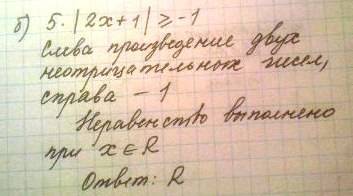 б) 5·|2x+1| ≥ -1
Слева произведение двух
неотрицательных чисел,
справа - 1
Неравенство выполнено
при x ∈ R
Ответ: R